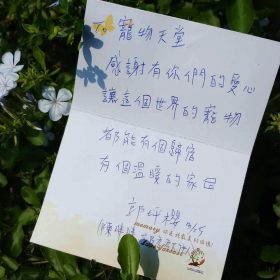 To 寵物天堂
感謝有你們的愛心
讓這個世界的寵物
都能有個歸宿
有個溫暖的家
郭坪櫻 9/15
memory